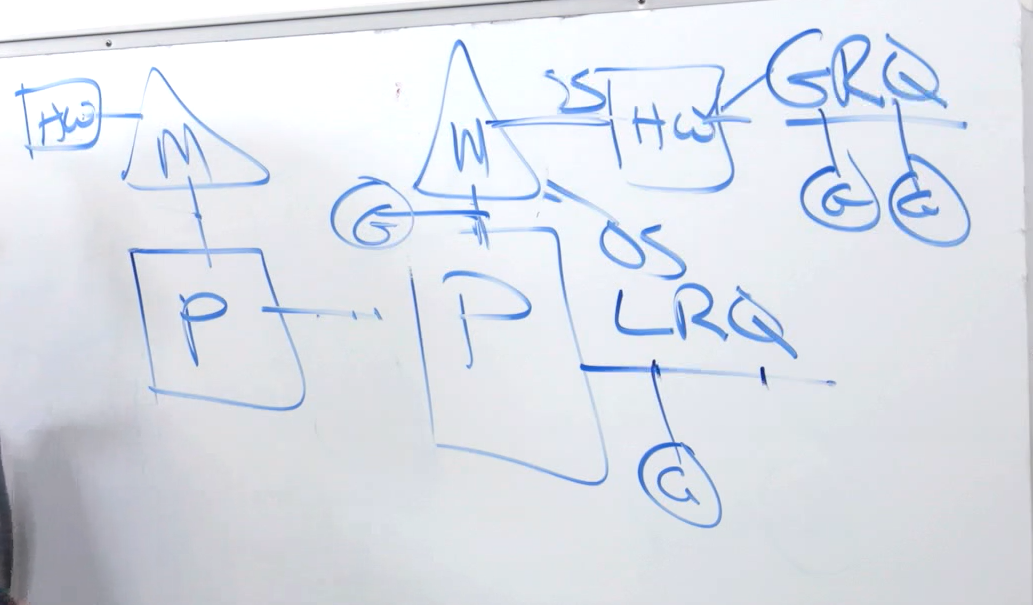 HW
M
P
M
JS
HW
GRQ
G
G
G
OS
P
LRQ
G